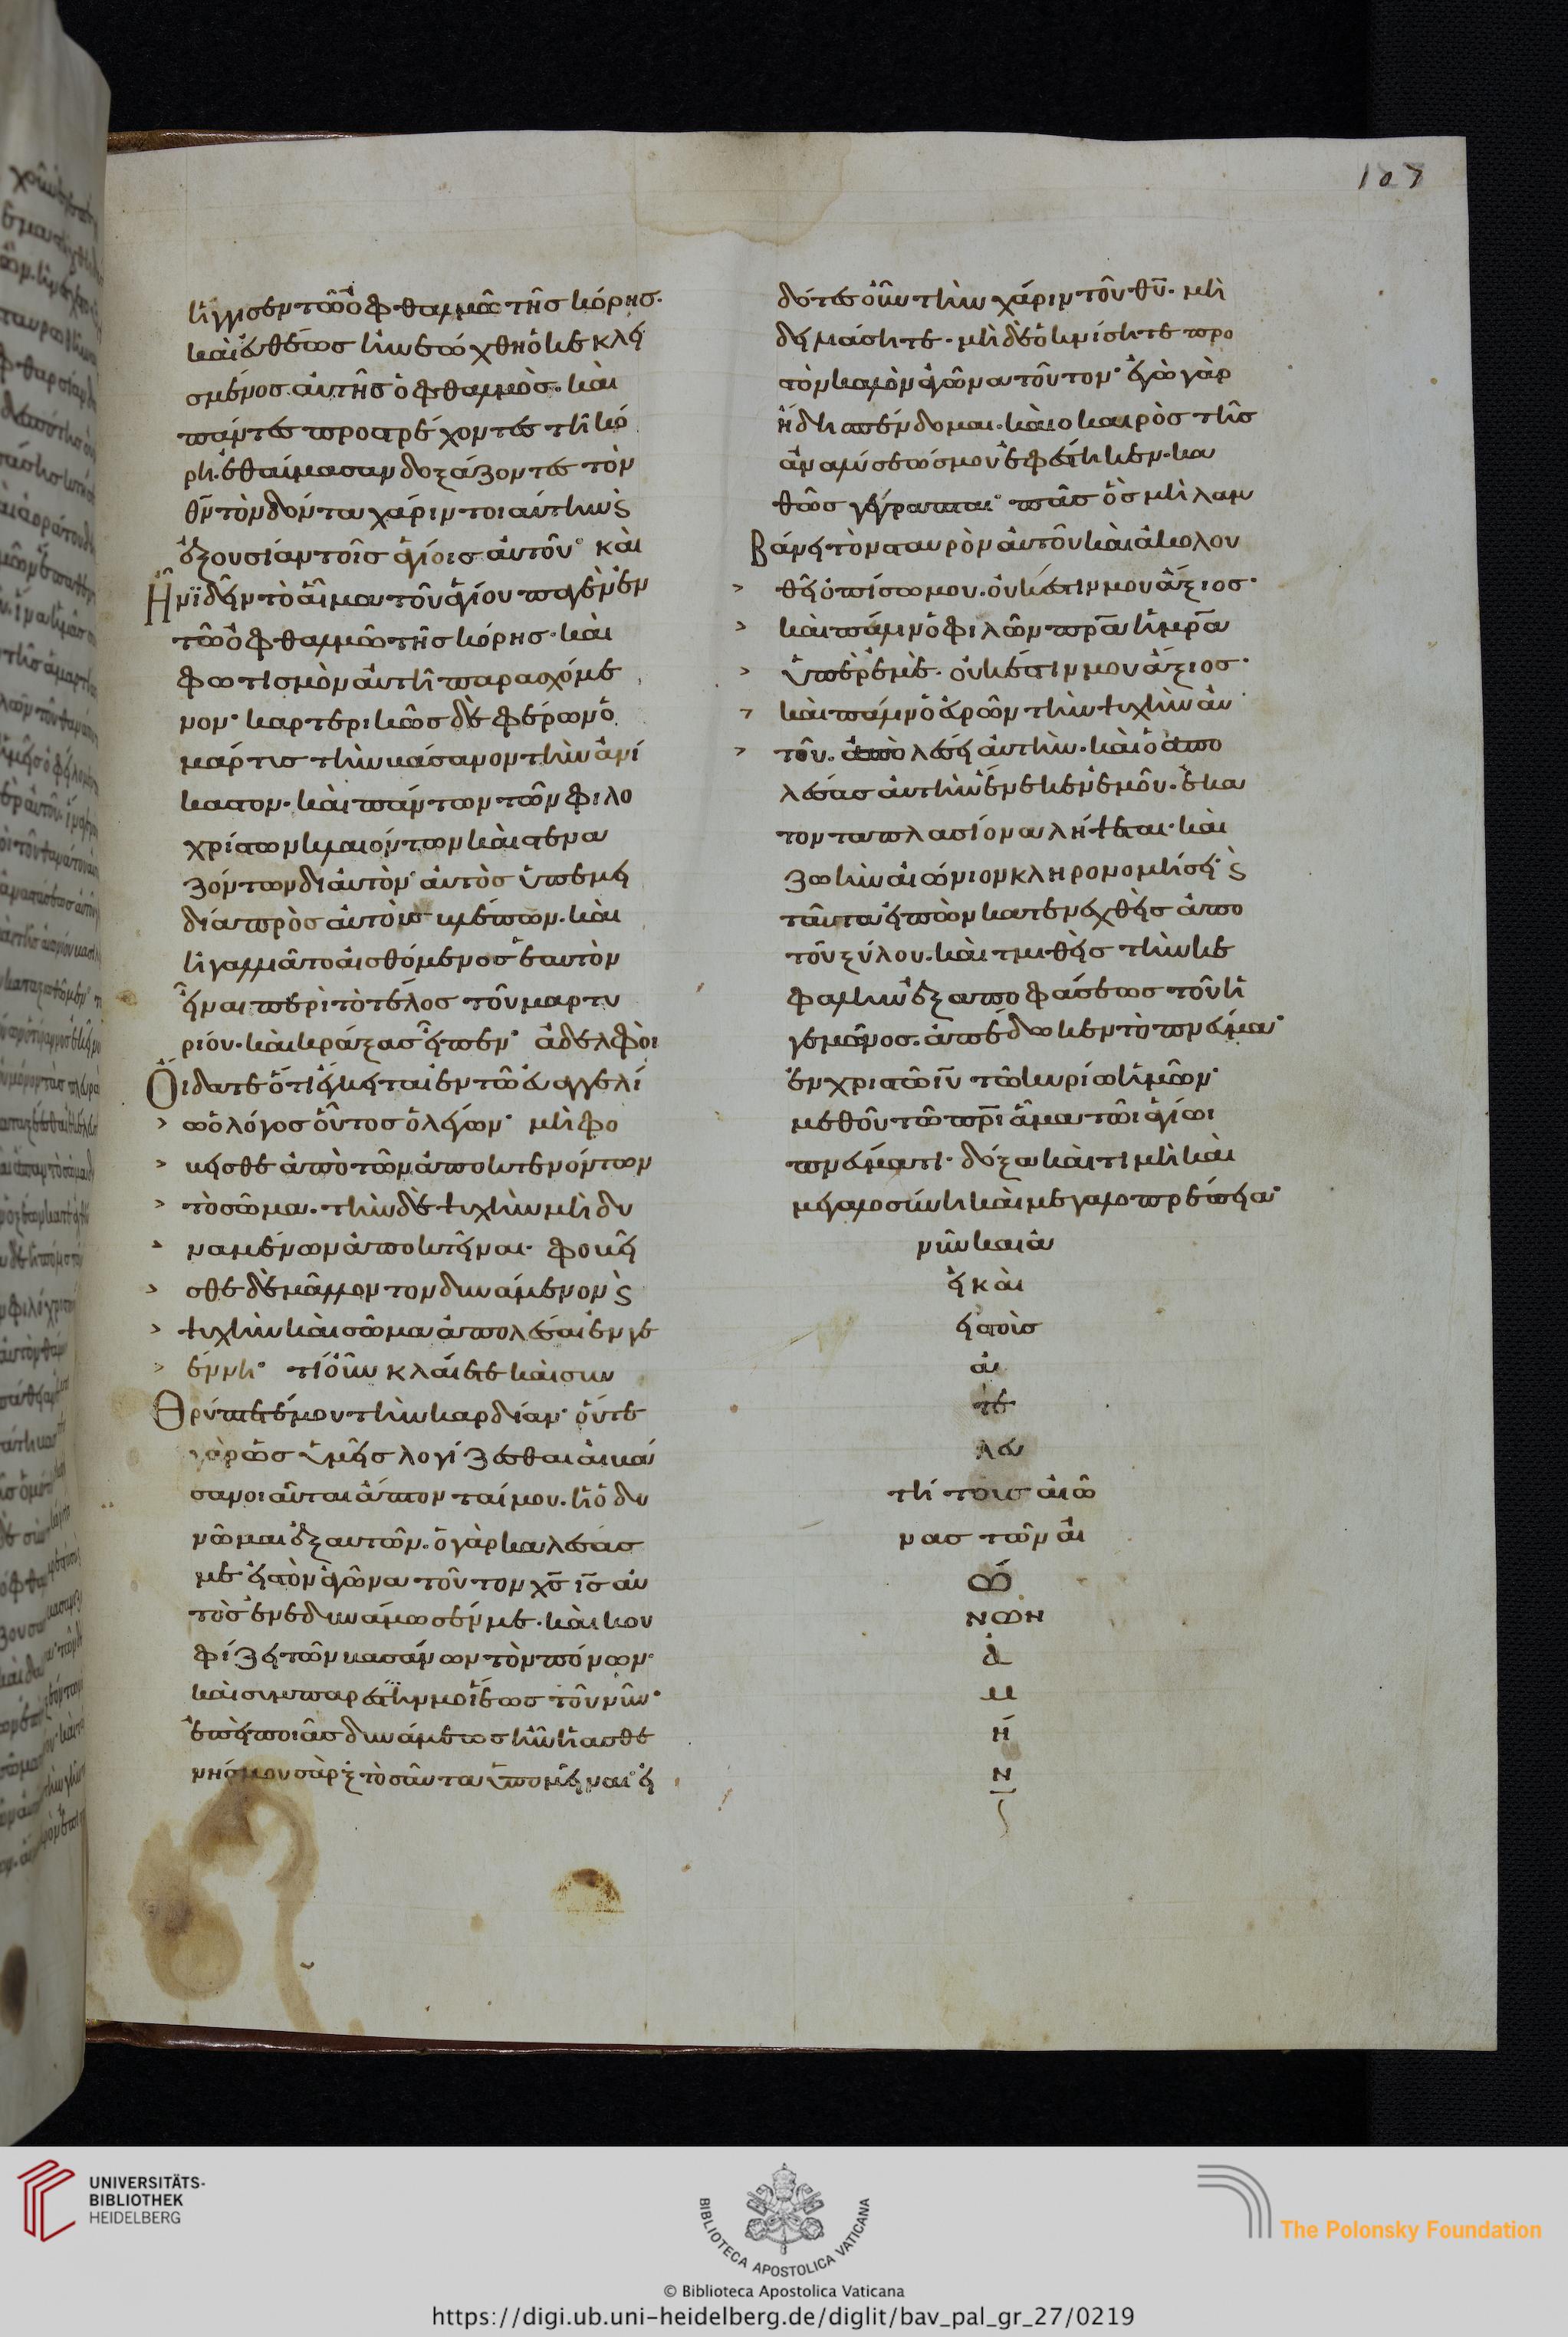 107
ἤγγισεν τῶ ὀφθαλμῶ τῆς κόρης·
καὶ εὐθέως ἠνεώχθη ὁ κεκλει
σμένος αὐτῆς ὀφθαλμὸς· καὶ
πάντες προστρέχοντες τῆ κό
ρη· ἐθαύμασαν δοξάζοντες τὸν
θν τὸν δόντα χάριν τοιαύτην ϗ
ἐξουσίαν τοῖς ἁγίοις αὐτοῦ· καὶ
Ἦν ϊδεῖν τὸ αἷμα τοῦ ἁγίου παγὲν ἐν
τῶ ὀφθαλμῶ τῆς κόρης· καὶ
φωτισμὸν αὐτῆ παρασχόμε
νον· καρτερικῶς δὲ φέρων ὁ
μάρτυς τὴν βάσανον τὴν ἀνί
καστον· καὶ πάντων τῶν φιλο
χρίστων κλαιόντων καὶ στενα
ζόντων δι αὐτὸν· αὐτὸς ὑπεμει
δία πρὸς αὐτοὺς βλέπων· καὶ
ἠγαλλιᾶτο αἰσθόμενος ἑαυτὸν
εἶναι περὶ τὸ τέλος τοῦ μαρτυ
ρίου· καὶ κράξας εἶπεν· ἀδελφοὶ
Οἴδατε ὅτι κεῖται ἐν τῶ εὐαγγελί
ω ὁ λόγος οὗτος ὁ λέγων· μὴ φο
βεῖσθε ἀπὸ τῶν ἀποκτενόντων
τὸ σῶμα· τὴν δὲ ψυχὴν μὴ δυ
ναμένων ἀποκτεῖναι· φοβεῖ
σθε δὲ μᾶλλον τὸν δυνάμενον ϗ
ψυχὴν καὶ σῶμα ἀπολέσαι ἐν γε
έννη· τί οὖν κλαίετε καὶ συν
Θρύπτετέ μου τὴν καρδίαν· οὔτε
γὰρ ὡς ὑμεῖς λογίζεσθαι αἱ βά
σανοι αὗται ἅπτονταί μου· ἢ ὀδυ
νῶμαι ἐξ αὐτῶν· ὁ γὰρ καλέσας
με εἰς τὸν ἀγῶνα τοῦτον χς ις αὐ
τὸς ἐνεδυνάμωσέν με· καὶ κου
φίζει τῶν βασάνων τὸν πόνων·
καὶ συμπαρέστην μοι ἕως τοῦ νῦν·
ἐπεὶ ποίας δυνάμεως ἦν ἡ ἀσθε
νής μου σὰρξ τοσαῦτα ὑπομεῖναι· εἰ
δότες οὖν τὴν χάριν τοῦ θυ· μὴ
δειλιάσητε· μὴ δὲ ὀκνήσητε πρὸ
στὸν καλὸν ἀγῶνα τοῦτον· ἐγὼ γὰρ
ἤδη σπένδομαι· καὶ ὁ καιρὸς τῆς
ἀναλύσεώς μου ἐφέστηκεν· κα
θῶς γέγραπται· πᾶς ὃς μὴ λαμ
βάνει τὸν σταυρὸν αὐτοῦ καὶ ἀκολου
θεῖ ὀπίσω μου· οὐκ ἔστιν μου ἄξιος·
καὶ πάλιν ὁ φιλῶν πρα ἢ μρα
ὑπὲρ ἐμὲ· οὐκ ἔστιν μου ἄξιος·
καὶ πάλιν ὁ εὑρῶν τὴν ψυχὴν αὐ
τοῦ· ἀπολέσει αὐτὴν· καὶ ὁ ἀπο
λέσας αὐτὴν ἕνεκεν ἐμοῦ· ἑκα
τονταπλασίονα λήψεται· καὶ
ζωὴν αἰώνιον κληρονομήσει· ϗ
ταῦτα εἰπὼν κατενεχθεὶς ἀπὸ
τοῦ ξύλου· καὶ τμηθεὶς τὴν κε
φαλὴν ἐξ ἀποφάσεως τοῦ ἡ
γεμόνος· ἀπέδωκεν τὸ πνεῦμα·
ἐν χριστῶ ιυ τῶ κυρίω ἡμῶν·
μεθοῦ τῶ πρι ἅμα τῶι ἁγίωι
πνεύματι· δόξα καὶ τιμὴ καὶ
μεγαλοσύνη καὶ μεγαλοπρέπεια·
νῦν καὶ ἀ
εὶ καὶ
εἰς τοὺς
ἀ
τε
λευ
τή τους αἰῶ
νας τῶν αἰ
ώ
νων
ἀ
μ
ή
ν
UNIVERSITÄTS-
BIBLIOTHEK
HEIDELBERG
BIBLIOTECA APOSTOLICA VATICANA
The Polonsky Foundation
© Biblioteca Apostolica Vaticana
https://digi.ub.uni-heidelberg.de/diglit/bav_pal_gr_27/0219